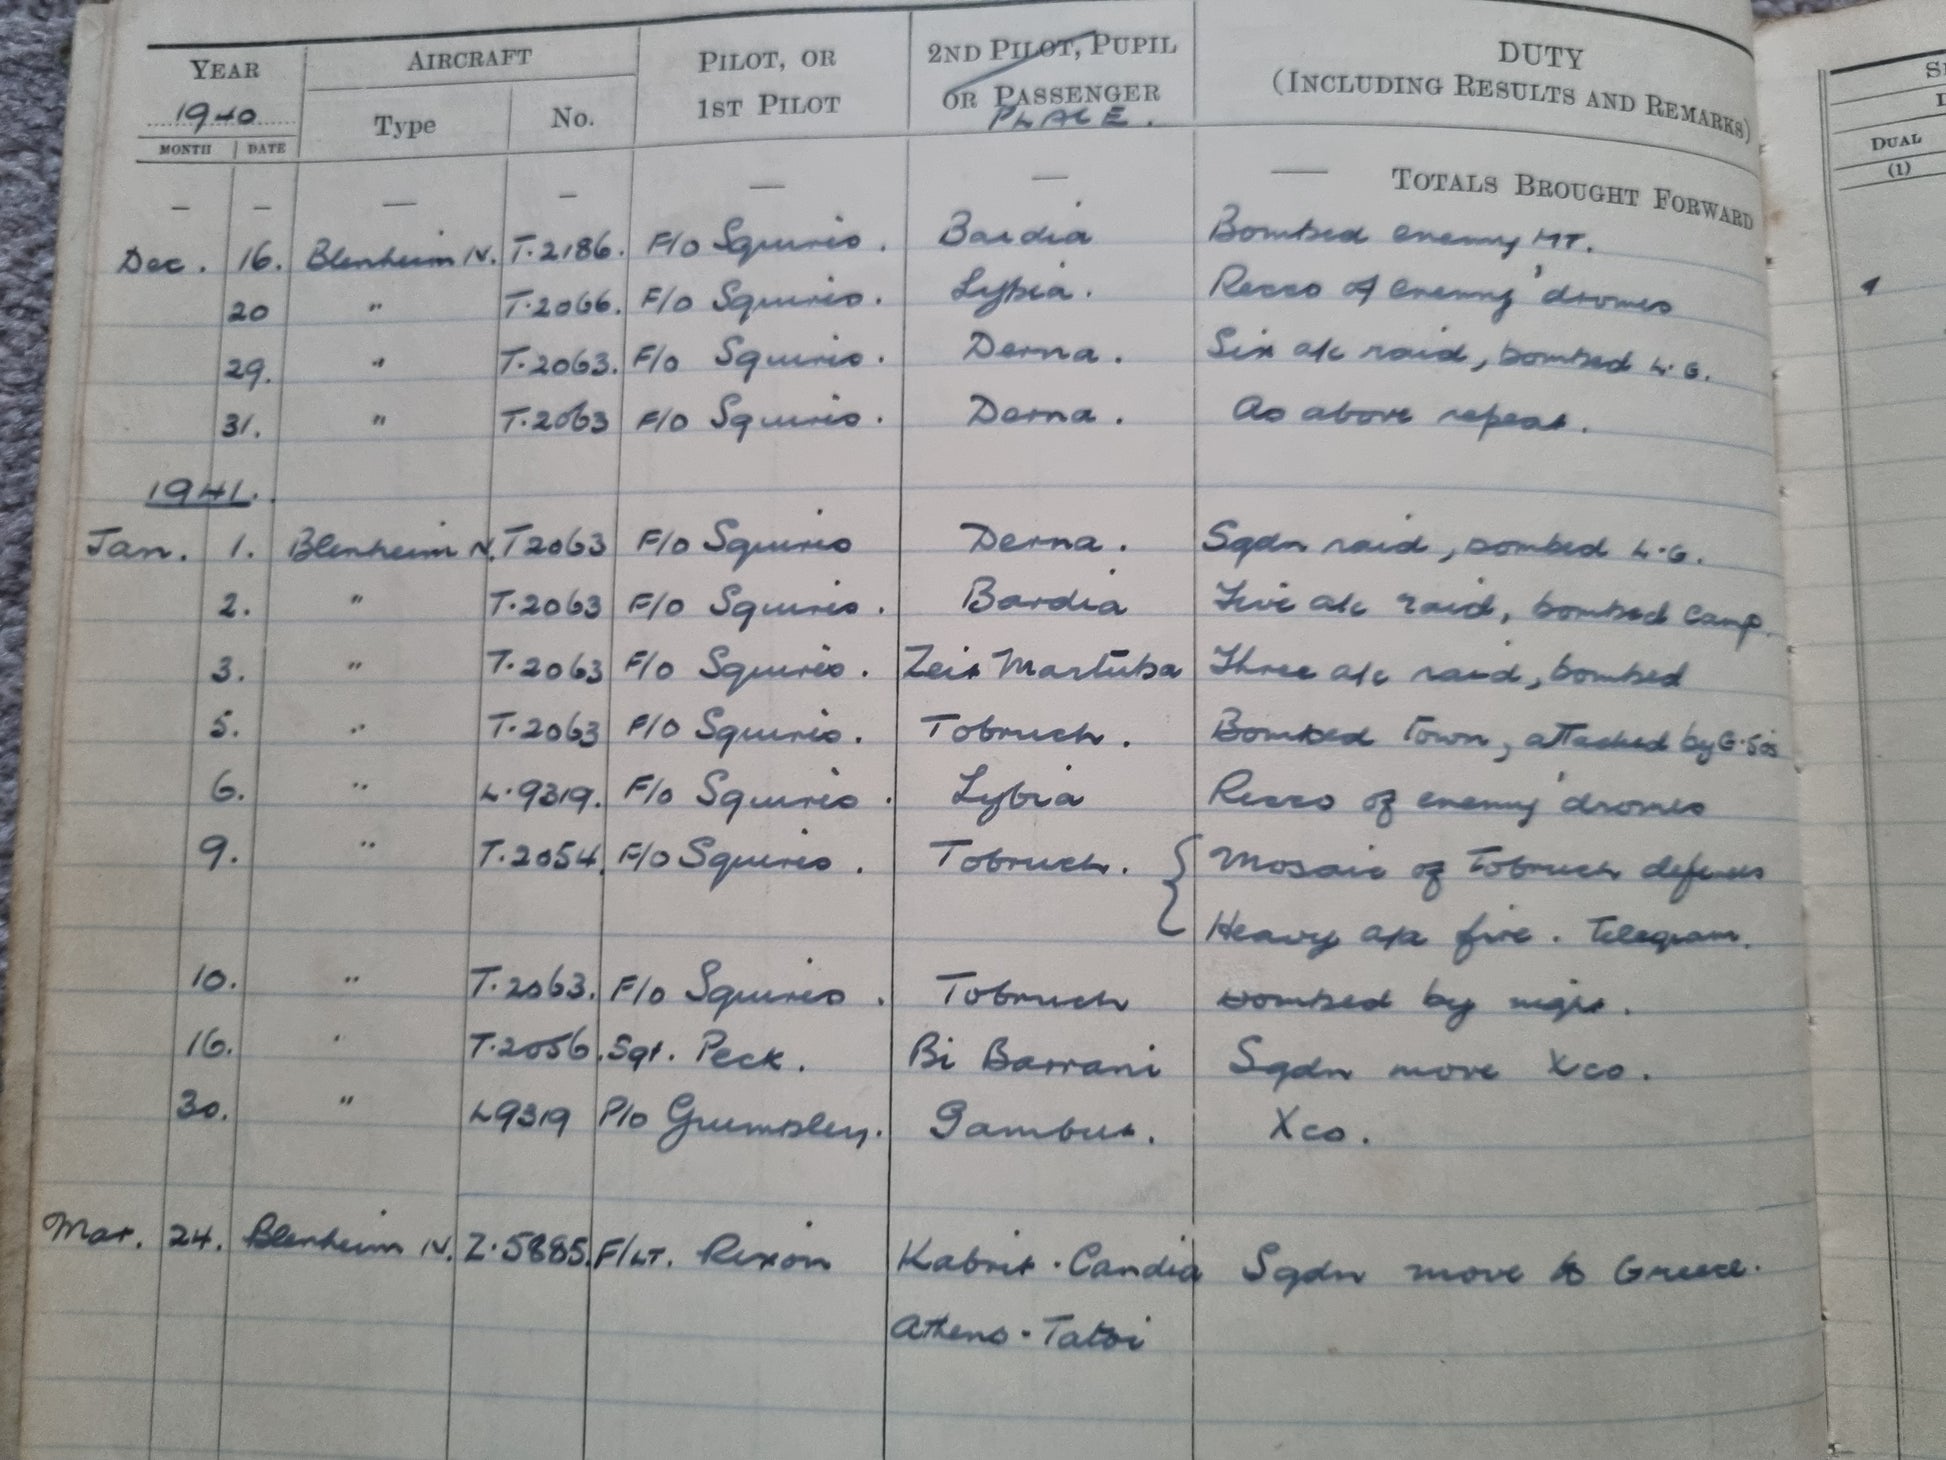 YEAR AIRCRAFT PILOT, OR 2ND PILOT, PUPIL DUTY
1940 Type No. 1ST PILOT OR PASSENGER (INCLUDING RESULTS AND REMARKS)
MONTH DATE PLACE. DUAL
(1)
— — — — — — — TOTALS BROUGHT FORWARD
Dec. 16. Blenheim IV. T.2186. F/O Squires. Bardia Bombed enemy MT.
20 " T.2066. F/O Squires. Lybia. Recco of enemy 'dromes
29. " T.2063. F/O Squires. Derna. Six a/c raid, bombed L.G.
31. " T.2063 F/O Squires. Derna. As above repeat.
1941.
Jan. 1. Blenheim IV. T2063 F/O Squires Derna. Sqdn raid, bombed L.G.
2. " T.2063 F/O Squires. Bardia Five a/c raid, bombed camp.
3. " T.2063 F/O Squires. Martuba Three a/c raid, bombed
5. " T.2063 F/O Squires. Tobruch. Bombed Town, attacked by G.50s
6. " L.9319. F/O Squires. Lybia Recco of enemy 'dromes
9. " T.2054. F/O Squires. Tobruch. { Mosaic of Tobruch defences
Heavy a/a fire. Telegram.
10. " T.2063. F/O Squires. Tobruch bombed by night.
16. " T.2056. Sgt. Peck. Bi Barrani Sqdn move Xco.
30. " L9319 P/O Gambut. Xco.
Mar. 24. Blenheim IV. Z.5885. F/LT. Rixon Kabrit. Candia Sqdn move to Greece.
Athens. Tatoi